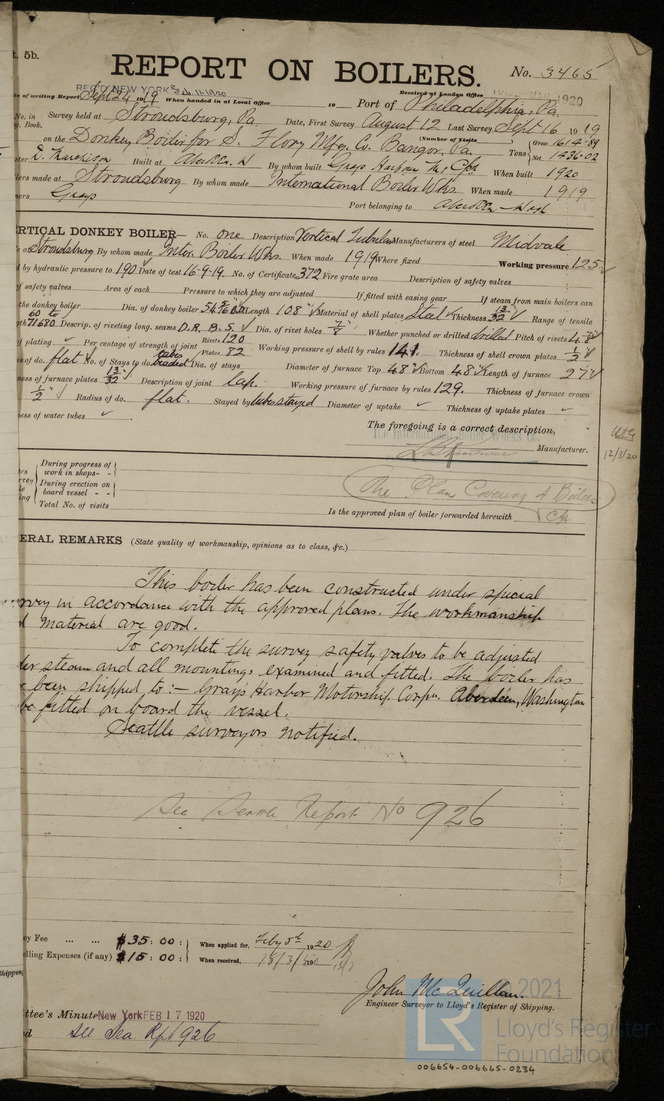 t. 5b.
REPORT ON BOILERS. No. 3465
REC'D NEW YORK Feb. 11-1920
te of writing Report Sept 24 1919 When handed in at Local Office 19 Port of Philadelphia, Pa.
Received at London Office 1920
No. in Survey held at Stroudsburg, Pa. Date, First Survey August 12 Last Survey Sept 16 1919
g. Book. (Number of Visits)
on the Donkey Boiler for S. Flory Mfg. Co. Bangor, Pa. Tons { Gross 1614.89 Net 1436.02
ster Built at Aberdeen W By whom built Grays Harbor Mr. Cpn When built 1920
lers made at Stroudsburg By whom made International Boiler Wks When made 1919
ners Grays Port belonging to Aberdeen Wash
ERTICAL DONKEY BOILER No. one Description Vertical Tubular Manufacturers of steel Midvale
e at Stroudsburg By whom made Inter. Boiler Wks. When made 1919 Where fixed Working pressure 125
d by hydraulic pressure to 190 Date of test 16-9-19 No. of Certificate 372 Fire grate area Description of safety valves
of safety valves Area of each Pressure to which they are adjusted If fitted with easing gear If steam from main boilers can
the donkey boiler Dia. of donkey boiler 54 Length 108 Material of shell plates Steel Thickness 13/32 Range of tensile
60 to
gth 71680 Descrip. of riveting long. seams D.R. B. S. Dia. of rivet holes 7/8 Whether punched or drilled drilled Pitch of rivets
of plating Per centage of strength of joint Rivets 120 Plates 82 Working pressure of shell by rules 141 Thickness of shell crown plates 1/2
s of do. flat No. of Stays to do. Dia. of stays Diameter of furnace Top 48 Bottom 48 Length of furnace 27
ness of furnace plates 13/32 Description of joint lap. Working pressure of furnace by rules 129. Thickness of furnace crown
1/2 Radius of do. flat. Stayed by tube stayed Diameter of uptake Thickness of uptake plates
ness of water tubes
The foregoing is a correct description,
The International Boiler Works Co.
Manufacturer.
12/3/20
During progress of work in shops - -
During erection on board vessel - - -
Total No. of visits
The Plan Covering of Boiler
Is the approved plan of boiler forwarded herewith
ERAL REMARKS (State quality of workmanship, opinions as to class, &c.)
This boiler has been constructed under special
rvey in accordance with the approved plans. The workmanship
d material are good.
To complete the survey safety valves to be adjusted
der steam and all mountings examined and fitted. The boiler has
e been shipped to:- Grays Harbor Motorship. Corpn. Aberdeen, Washington
be fitted on board the vessel.
Seattle surveyors notified.
See Seattle Report No 926
ey Fee ... ... $35:00: When applied for, Feby 5th 1920
elling Expenses (if any) $15:00: When received, 18/3/20
John McQuillan.
Engineer Surveyor to Lloyd's Register of Shipping.
ttee's Minute New York FEB 17 1920
d See Sea. Rpt 926
© 2021
LR
Lloyd's Register
Foundation
006654-006665-0234